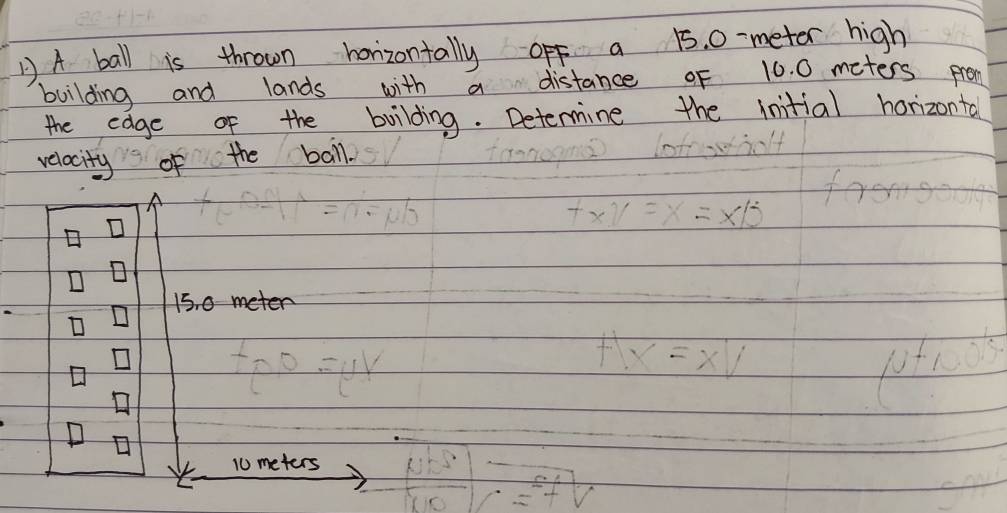 1.) A ball is thrown horizontally OFF a 15.0-meter high
building and lands with a distance OF 10.0 meters from
the edge OF the building. Determine the initial horizontal
velocity OF the ball.
15.0 meter
10 meters